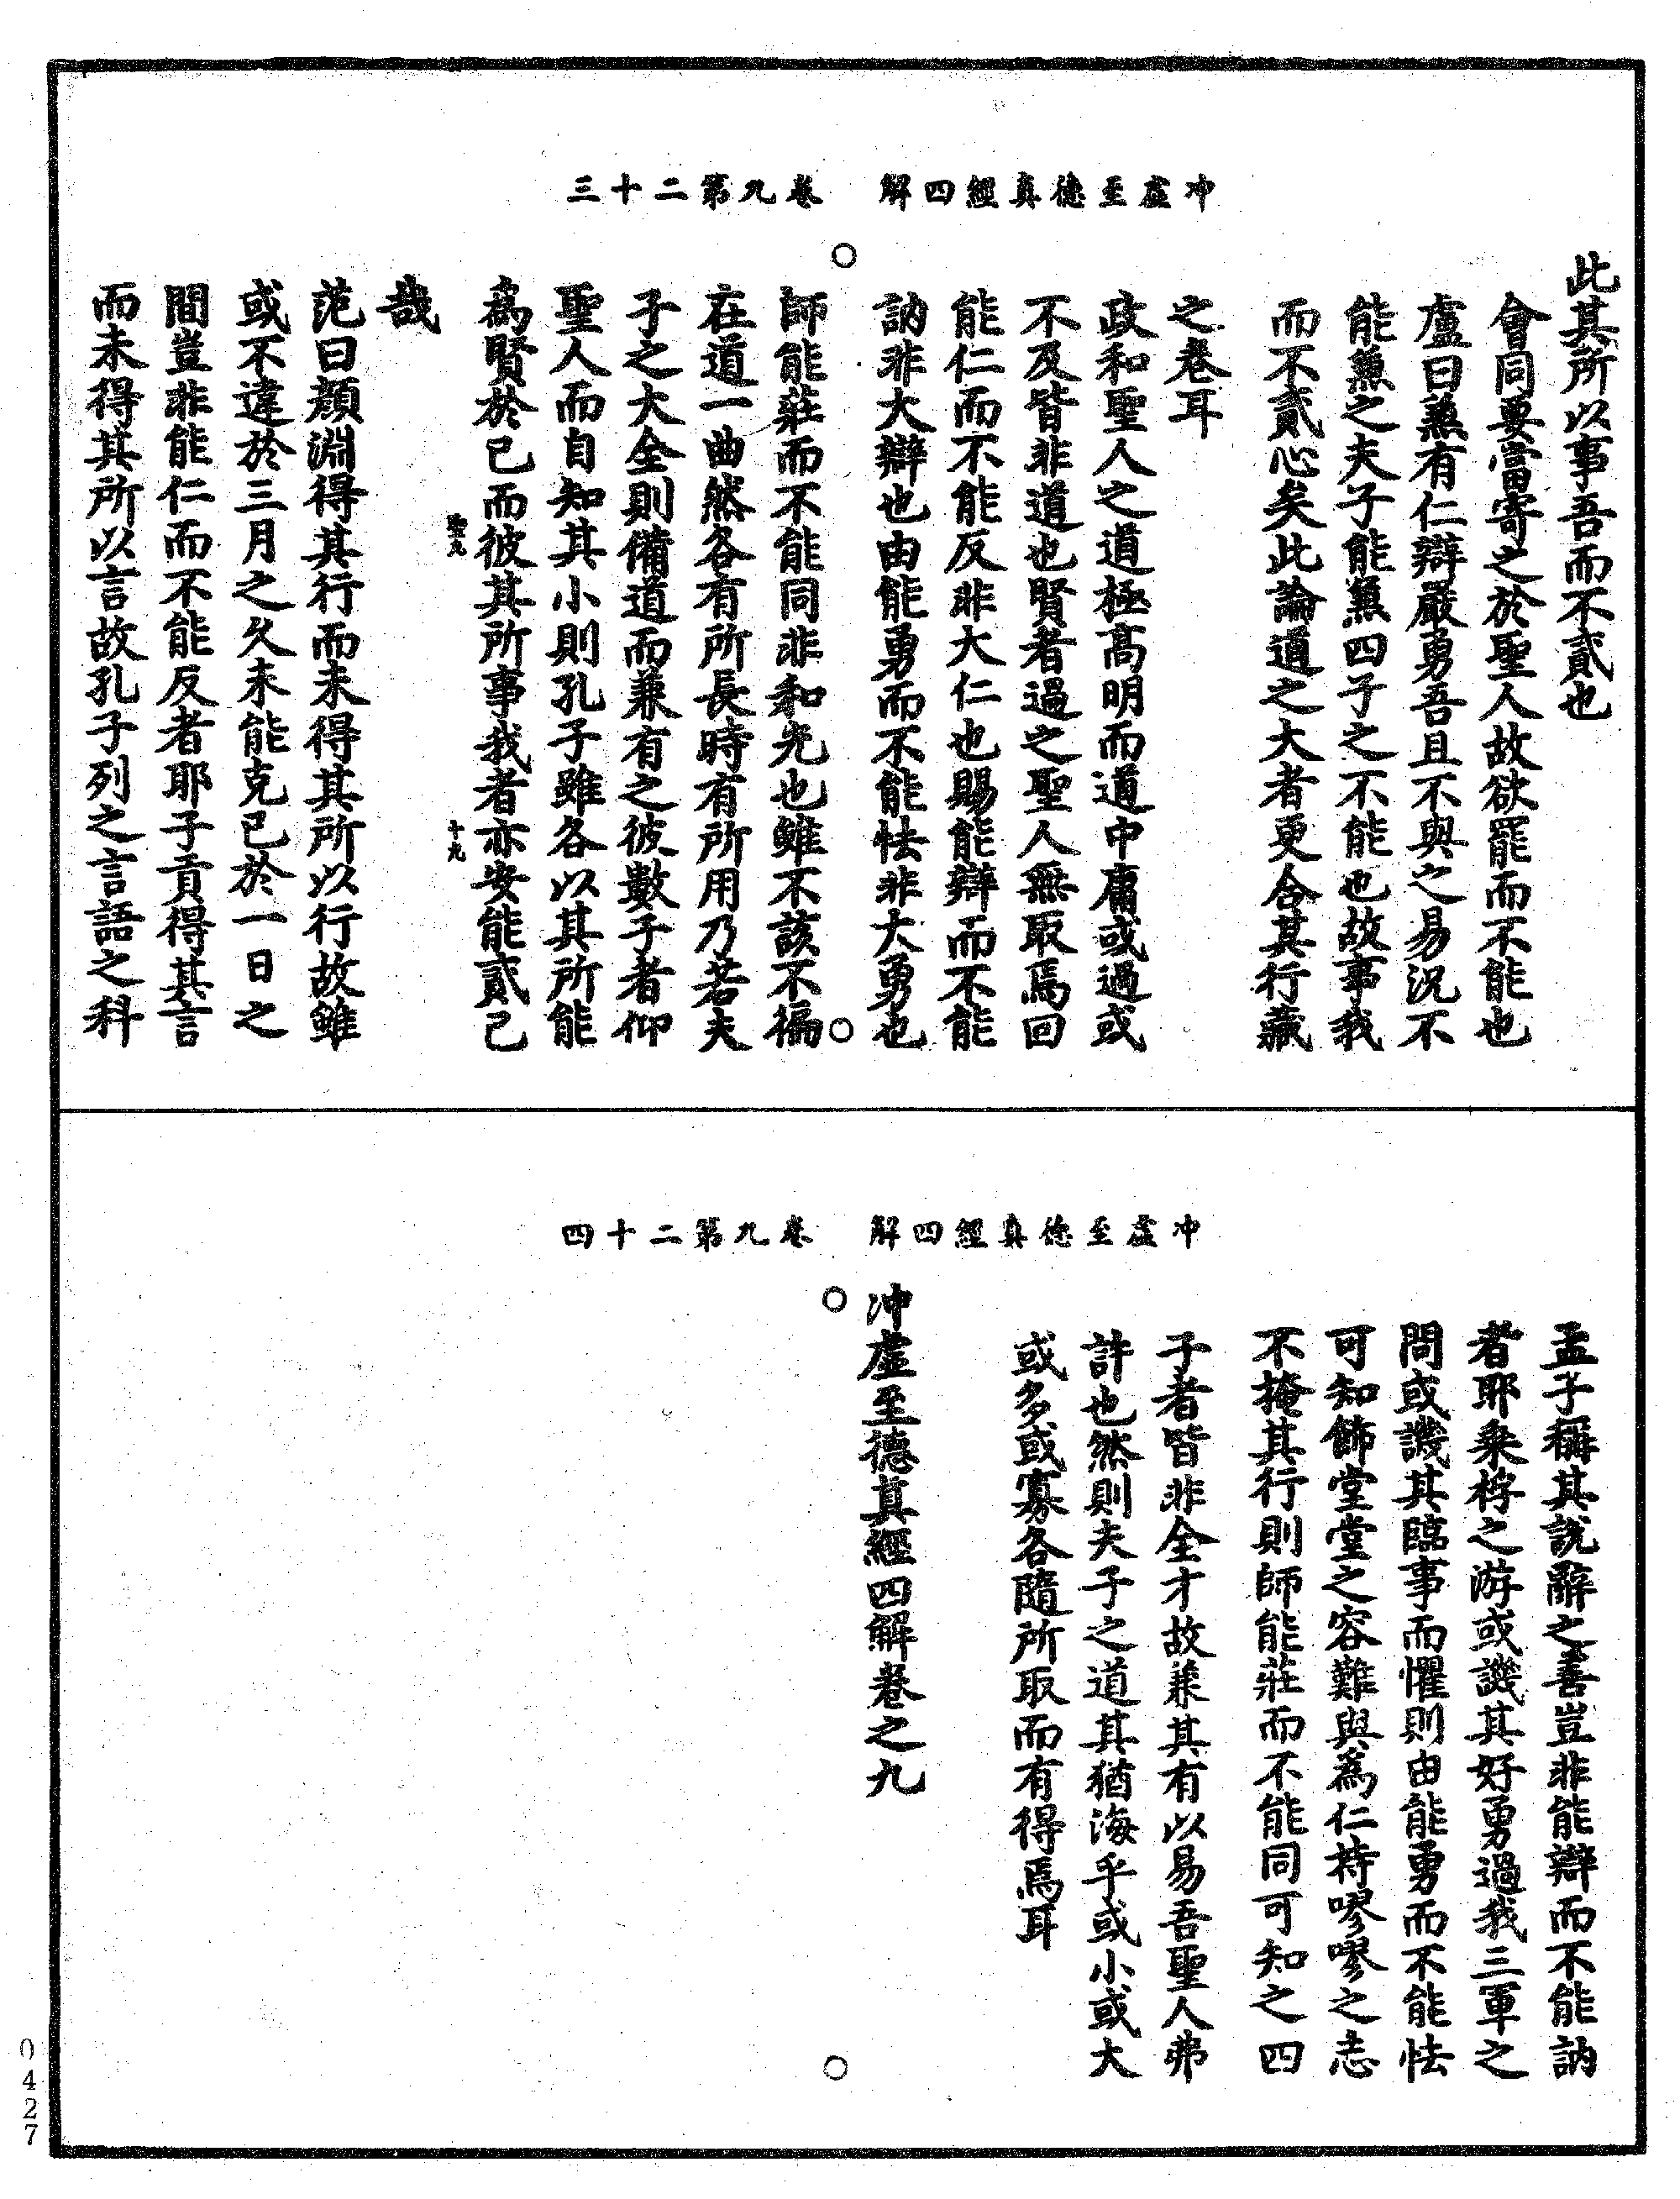 冲虛至德真經四解　卷九第二十三
此其所以事吾而不貳也
會同要當寄之於聖人故欲罷而不能也
盧曰兼有仁辯嚴勇吾且不與之易況不
能兼之夫子能兼四子之不能也故事我
而不貳心矣此論道之大者更合其行藏
之卷耳
政和聖人之道極高明而道中庸或過或
不及皆非道也賢者過之聖人無取焉回
能仁而不能反非大仁也賜能辯而不能
訥非大辯也由能勇而不能怯非大勇也
師能莊而不能同非和光也雖不該不徧
在道一曲然各有所長時有所用乃若夫
子之大全則備道而兼有之彼數子者仰
聖人而自知其小則孔子雖各以其所能
為賢於己而彼其所事我者亦安能貳己
聖九　十九
哉
范曰顏淵得其行而未得其所以行故雖
或不違於三月之久未能克己於一日之
間豈非能仁而不能反者耶子貢得其言
而未得其所以言故孔子列之言語之科
冲虛至德真經四解　卷九第二十四
孟子稱其說辭之善豈非能辯而不能訥
者耶乘桴之游或譏其好勇過我三軍之
問或譏其臨事而懼則由能勇而不能怯
可知飾堂堂之容難與為仁持嘐嘐之志
不掩其行則師能莊而不能同可知之四
子者皆非全才故兼其有以易吾聖人弗
許也然則夫子之道其猶海乎或小或大
或多或寡各隨所取而有得焉耳
冲虛至德真經四解卷之九
0427